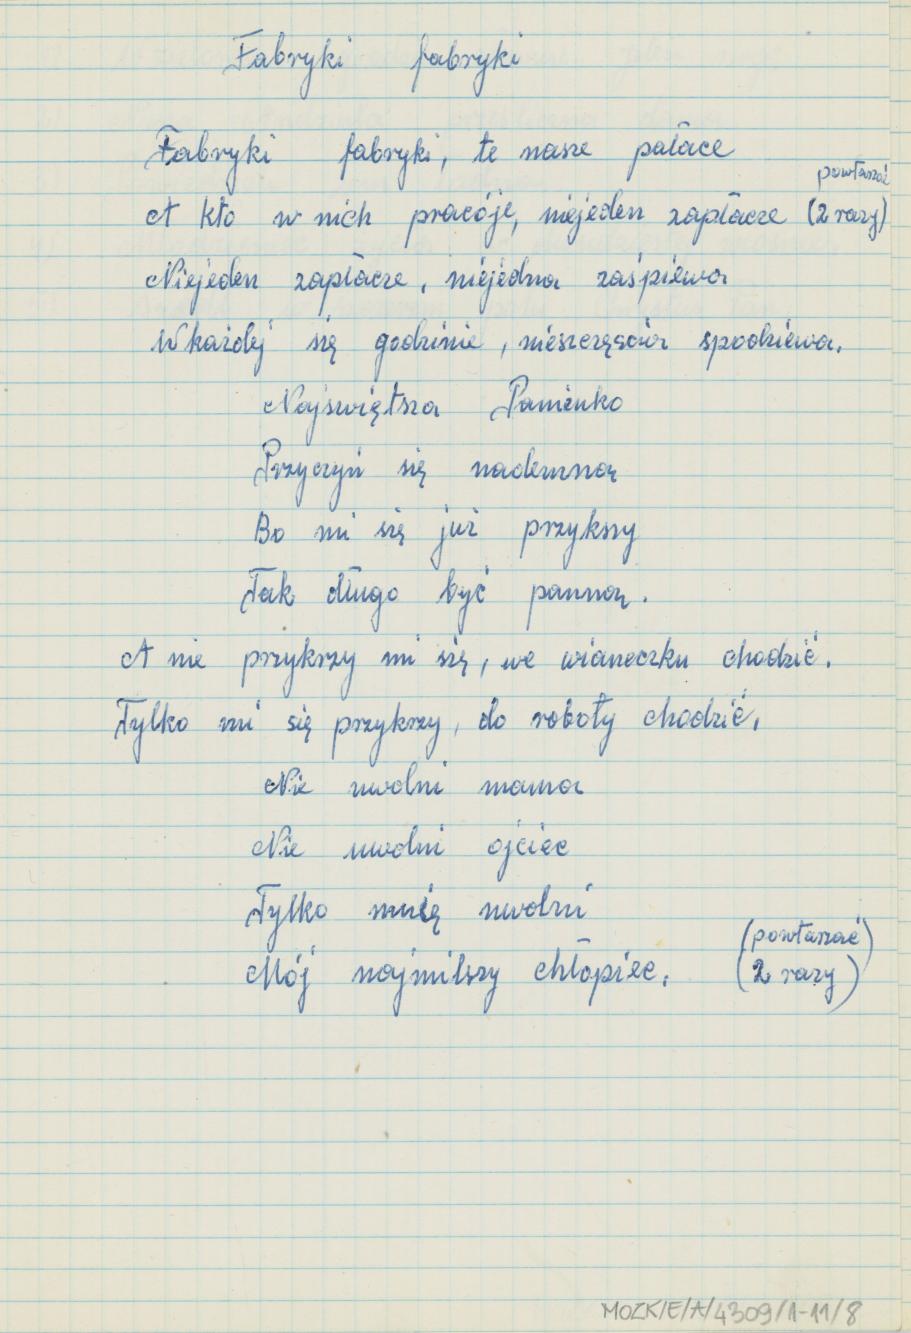 Fabryki fabryki
Fabryki fabryki, te nasze pałace
powtarzać
A kto w nich pracóję, niejeden zapłacze (2 razy)
Niejeden zapłacze, niejedna zaśpiewa
W każdej się godzinie, nieszczęścia spodziewa.
Najświętsza Panienko
Przyczyń się nademną
Bo mi się już przykszy
Tak długo być panną.
A nie przykrzy mi się, we wianeczku chodzić.
Tylko mi się przykrzy, do roboty chodzić.
Nie uwolni mama
Nie uwolni ojciec
Tylko mnię uwolni
Mój najmilszy chłopiec.
(powtarzać)
(2 razy)
MOZK/E/A/4309/1-11/8